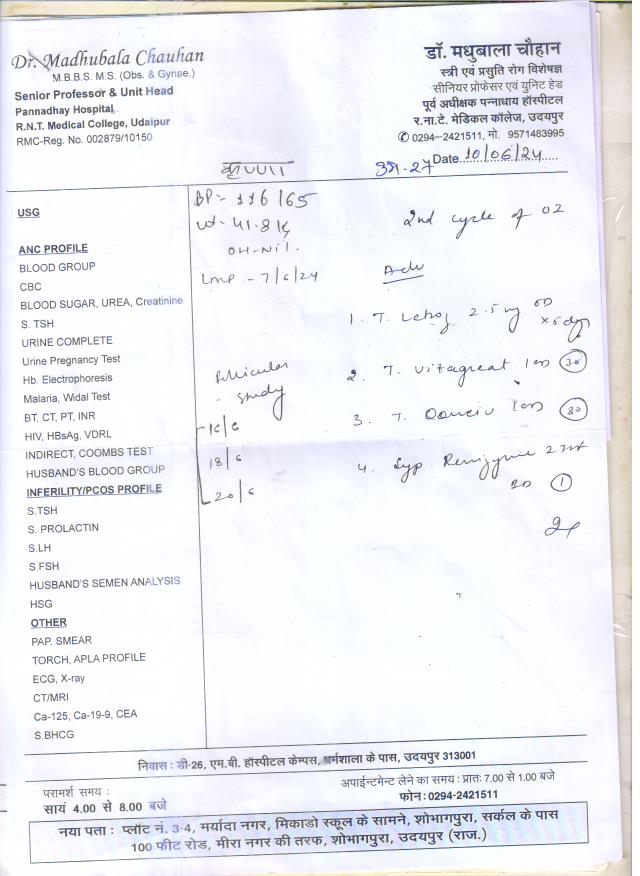 Dr. Madhubala Chauhan
M.B.B.S. M.S. (Obs. & Gynae.)
Senior Professor & Unit Head
Pannadhay Hospital
R.N.T. Medical College, Udaipur
RMC-Reg. No. 002879/10150
डॉ. मधुबाला चौहान
स्त्री एवं प्रसुति रोग विशेषज्ञ
सीनियर प्रोफेसर एवं युनिट हेड
पूर्व अधीक्षक पन्नाधाय हॉस्पीटल
र.ना.टे. मेडिकल कॉलेज, उदयपुर
✆ 0294-2421511, मो. 9571483995
Date 10/06/24
USG
ANC PROFILE
BLOOD GROUP
CBC
BLOOD SUGAR, UREA, Creatinine
S. TSH
URINE COMPLETE
Urine Pregnancy Test
Hb. Electrophoresis
Malaria, Widal Test
BT, CT, PT, INR
HIV, HBsAg, VDRL
INDIRECT, COOMBS TEST
HUSBAND'S BLOOD GROUP
INFERILITY/PCOS PROFILE
S.TSH
S. PROLACTIN
S.LH
S.FSH
HUSBAND'S SEMEN ANALYSIS
HSG
OTHER
PAP. SMEAR
TORCH, APLA PROFILE
ECG, X-ray
CT/MRI
Ca-125, Ca-19-9, CEA
S.BHCG
BP- 116/65
wt- 41.8 kg
OH-Nil.
Lmp - 7/6/24
follicular
study
16/6
18/6
20/6
2nd cycle of OI
Adv
1. T. Letroz 2.5 mg OD
2. T. Vitagreat 1 OD 30
3. T. 1 OD 30
4. Syp. 2 tsf
BD 1
निवास : डी-26, एम.बी. हॉस्पीटल केम्पस, धर्मशाला के पास, उदयपुर 313001
परामर्श समय :
सायं 4.00 से 8.00 बजे
अपाईन्टमेन्ट लेने का समय : प्रातः 7.00 से 1.00 बजे
फोन : 0294-2421511
नया पता : प्लॉट नं. 3-4, मर्यादा नगर, मिकाडो स्कूल के सामने, शोभागपुरा, सर्कल के पास
100 फीट रोड, मीरा नगर की तरफ, शोभागपुरा, उदयपुर (राज.)